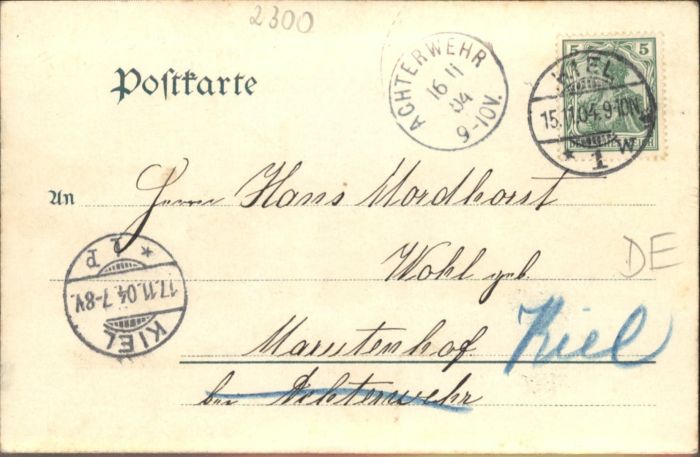 2300
Postkarte
ACHTERWEHR
16 11
04
9-10V.
5 5
KIEL
15.11.04. 9-10N.
* 1 W
An
Herrn Hans Mordhorst
Wohl geb.
DE
* 1 P
17.11.04. 7-8V.
KIEL
Marutenhof Kiel
bei Achterwehr